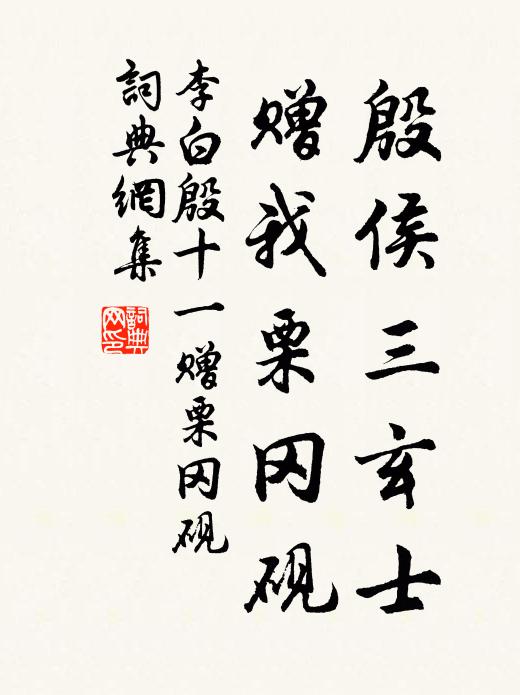 殷侯三玄士
赠我栗冈砚
李白殷十一赠栗冈砚
詞典網集
詞典网印